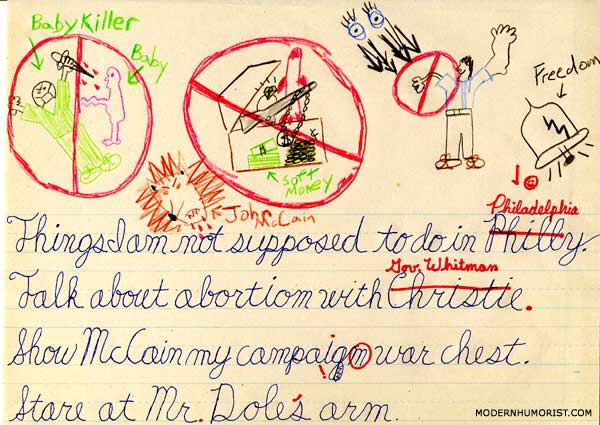 Baby Killer
Baby
Freedom
$oft Money
John McCain
Philadelphia
Things I am not supposed to do in Philly.
Gov. Whitman
Talk about abortion with Christie.
Show McCain my campaigm war chest.
!
Stare at Mr. Dole's arm.
MODERNHUMORIST.COM